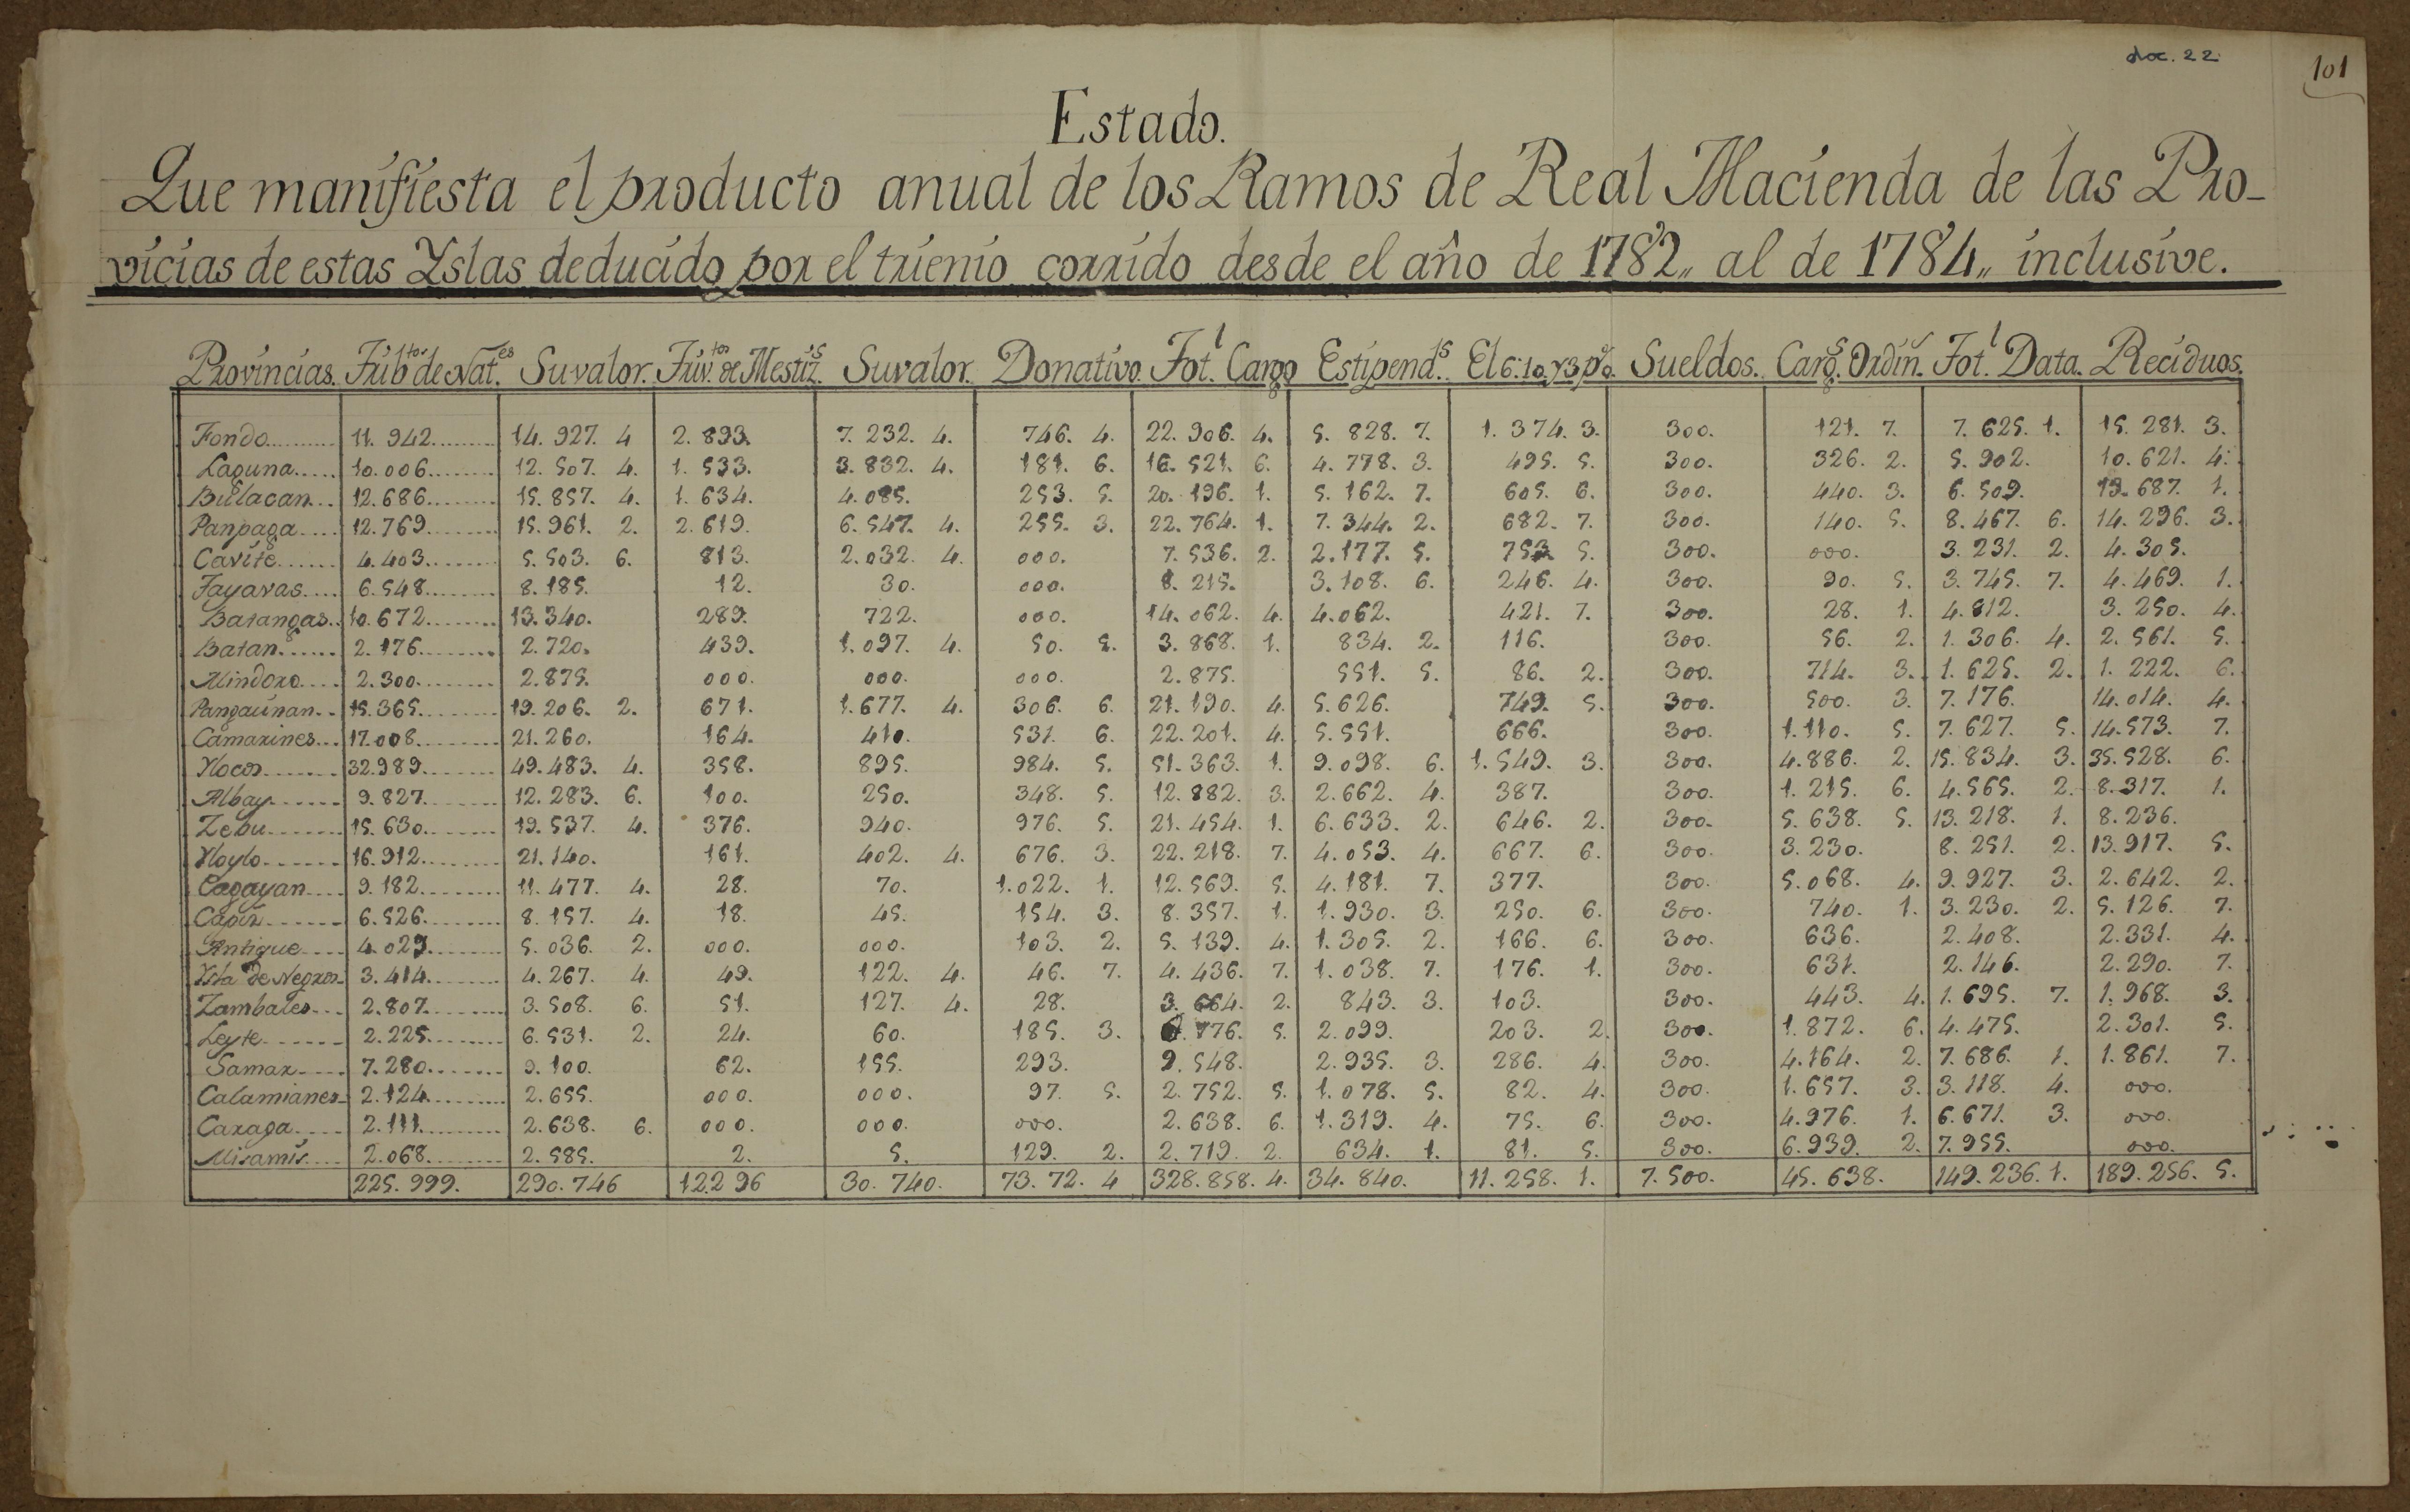 doc. 22
101
Estado.
Que manifiesta el producto anual de los Ramos de Real Hacienda de las Pro-
vicias de estas Yslas deducido por el trienio corrido desde el año de 1782,, al de 1784,, inclusive.
Provincias. Trib.tos de Nat.es Su valor. Triv.tos de Mestiz.s Su valor. Donativo. Tot.l Cargo Estipend.s El 6. 10. y 3 p% Sueldos. Carg.s Ordin.s Tot.l Data. Reciduos.
Tondo 11. 942. 14. 927. 4 2. 893. 7. 232. 4. 746. 4. 22. 906. 4. 5. 828. 7. 1. 374. 3. 300. 121. 7. 7. 625. 1. 15. 281. 3.
Laguna 10. 006. 12. 507. 4. 1. 533. 3. 832. 4. 181. 6. 16. 521. 6. 4. 778. 3. 495. 5. 300. 326. 2. 5. 902. 10. 621. 4.
Bulacan 12. 686. 15. 857. 4. 1. 634. 4. 085. 253. 5. 20. 196. 1. 5. 162. 7. 605. 6. 300. 440. 3. 6. 509. 13. 687. 1.
Panpaga 12. 769. 15. 961. 2. 2. 619. 6. 547. 4. 255. 3. 22. 764. 1. 7. 344. 2. 682. 7. 300. 140. 5. 8. 467. 6. 14. 296. 3.
Cavite 4. 403. 5. 503. 6. 813. 2. 032. 4. 000. 7. 536. 2. 2. 177. 5. 753 5. 300. 000. 3. 231. 2. 4. 305.
Tayavas 6. 548. 8. 185. 12. 30. 000. 8. 215. 3. 108. 6. 246. 4. 300. 90. 5. 3. 745. 7. 4. 469. 1.
Batangas 10. 672. 13. 340. 289. 722. 000. 14. 062. 4. 4. 062. 421. 7. 300. 28. 1. 4. 812. 3. 250. 4.
Batan 2. 176. 2. 720. 439. 1. 097. 4. 50. 5. 3. 868. 1. 834. 2. 116. 300. 56. 2. 1. 306. 4. 2. 561. 5.
Mindoro 2. 300. 2. 875. 000. 000. 000. 2. 875. 551. 5. 86. 2. 300. 714. 3. 1. 625. 2. 1. 222. 6.
Pangacinan 15. 365. 19. 206. 2. 671. 1. 677. 4. 306. 6. 21. 190. 4. 5. 626. 749. 5. 300. 500. 3. 7. 176. 14. 014. 4.
Camarines 17. 008. 21. 260. 164. 410. 531. 6. 22. 201. 4. 5. 551. 666. 300. 1. 110. 5. 7. 627. 5. 14. 573. 7.
Ylocos 32. 989. 49. 483. 4. 358. 895. 984. 5. 51. 363. 1. 9. 098. 6. 1. 549. 3. 300. 4. 886. 2. 15. 834. 3. 35. 528. 6.
Albay 9. 827. 12. 283. 6. 100. 250. 348. 5. 12. 882. 3. 2. 662. 4. 387. 300. 1. 215. 6. 4. 565. 2. 8. 317. 1.
Zebu 15. 630. 19. 537. 4. 376. 940. 976. 5. 21. 454. 1. 6. 633. 2. 646. 2. 300. 5. 638. 5. 13. 218. 1. 8. 236.
Yloylo 16. 912. 21. 140. 161. 402. 4. 676. 3. 22. 218. 7. 4. 053. 4. 667. 6. 300. 3. 230. 8. 251. 2. 13. 917. 5.
Cagayan 9. 182. 11. 477. 4. 28. 70. 1. 022. 1. 12. 569. 5. 4. 181. 7. 377. 300. 5. 068. 4. 9. 927. 3. 2. 642. 2.
Capiz 6. 526. 8. 157. 4. 18. 45. 154. 3. 8. 357. 1. 1. 930. 3. 250. 6. 300. 740. 1. 3. 230. 2. 5. 126. 7.
Antique 4. 029. 5. 036. 2. 000. 000. 103. 2. 5. 139. 4. 1. 305. 2. 166. 6. 300. 636. 2. 408. 2. 331. 4.
Ysla de Negros 3. 414. 4. 267. 4. 49. 122. 4. 46. 7. 4. 436. 7. 1. 038. 7. 176. 1. 300. 631. 2. 146. 2. 290. 7.
Zambales 2. 807. 3. 508. 6. 51. 127. 4. 28. 3. 664. 2. 843. 3. 103. 300. 443. 4. 1. 695. 7. 1. 968. 3.
Leyte 2. 225. 6. 531. 2. 24. 60. 185. 3. 776. 5. 2. 099. 203. 2. 300. 1. 872. 6. 4. 475. 2. 301. 5.
Samar 7. 280. 9. 100. 62. 155. 293. 9. 548. 2. 935. 3. 286. 4. 300. 4. 164. 2. 7. 686. 1. 1. 861. 7.
Calamianes 2. 124. 2. 655. 000. 000. 97. 5. 2. 752. 5. 1. 078. 5. 82. 4. 300. 1. 657. 3. 3. 118. 4. 000.
Caraga 2. 111. 2. 638. 6. 000. 000. 000. 2. 638. 6. 1. 319. 4. 75. 6. 300. 4. 976. 1. 6. 671. 3. 000.
Misamis 2. 068. 2. 585. 2. 5. 129. 2. 2. 719. 2. 634. 1. 81. 5. 300. 6. 939. 2. 7. 955. 000.
225. 999. 290. 746 122 96 30. 740. 73. 72. 4 328. 858. 4. 34. 840. 11. 258. 1. 7. 500. 45. 638. 149. 236. 1. 189. 256. 5.